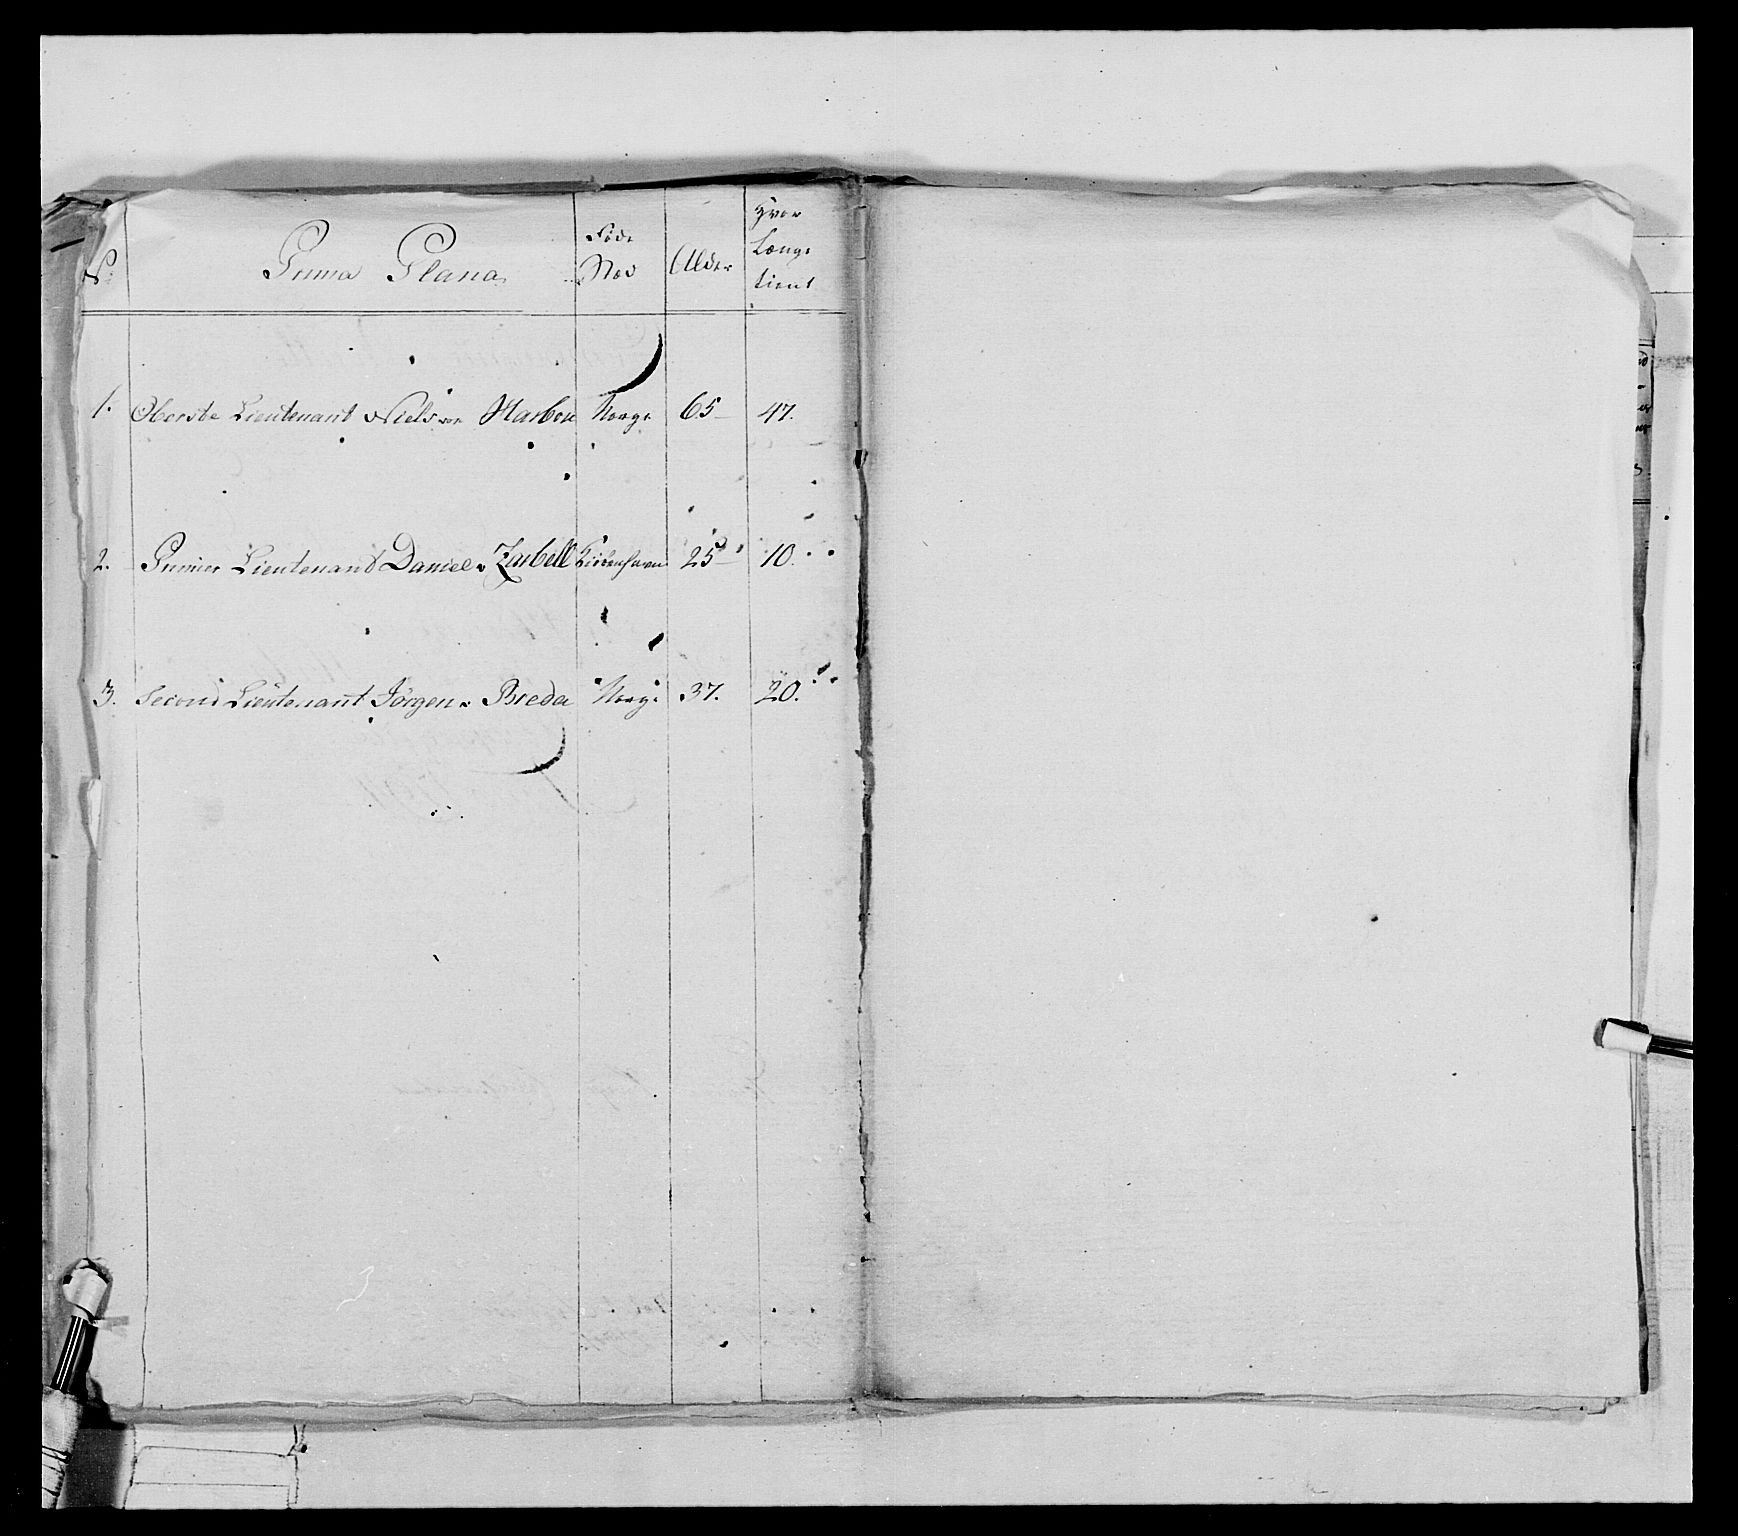 No. Prima Plana Föde Sted Alder Hvor Længe tient
1. Oberste Lieutenant Niels von Harbou Norge 65 47.
2. Primier Lieutenant Daniel v Zarbell Kiöbenhavn 25 10.
3. Second Lieutenant Jörgen v Breda Norge 37. 20.